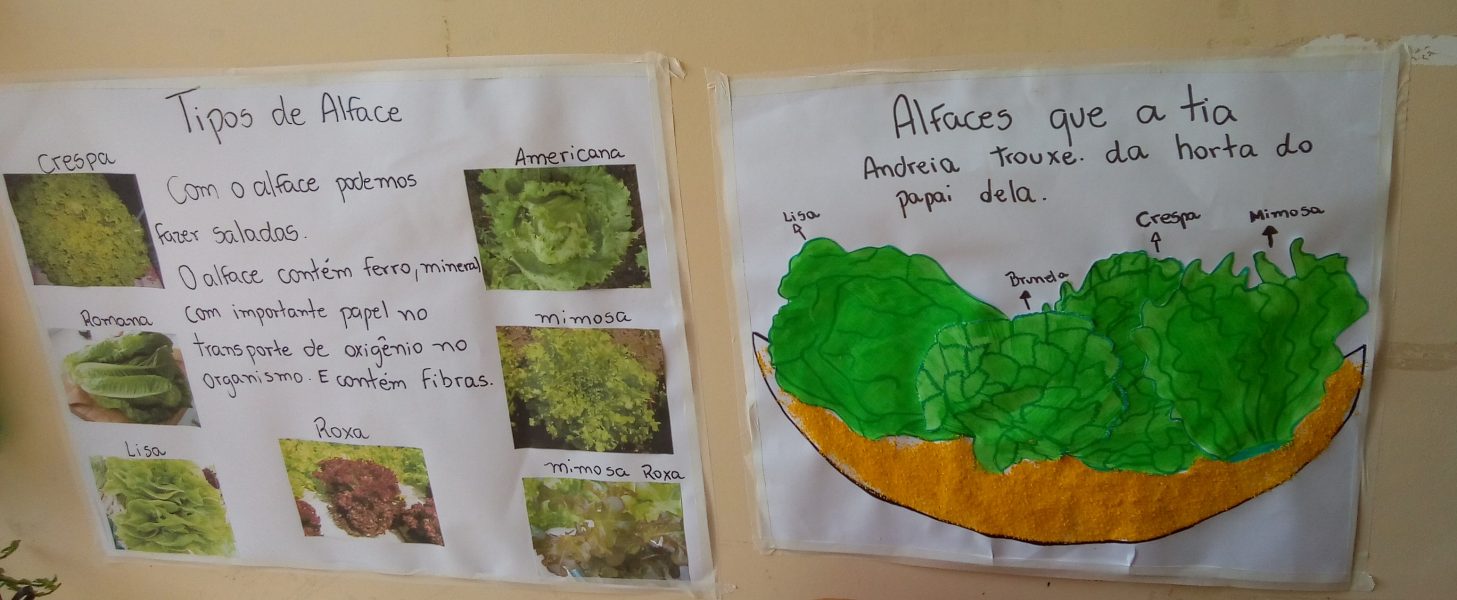 Tipos de Alface
Crespa
Americana
Com o alface podemos
fazer saladas.
O alface contém ferro, mineral
com importante papel no
transporte de oxigênio no
organismo. E contém fibras.
Romana
mimosa
Lisa
Roxa
mimosa Roxa
Alfaces que a tia
Andreia trouxe. da horta do
papai dela.
Lisa
Crespa
Mimosa
Brunela